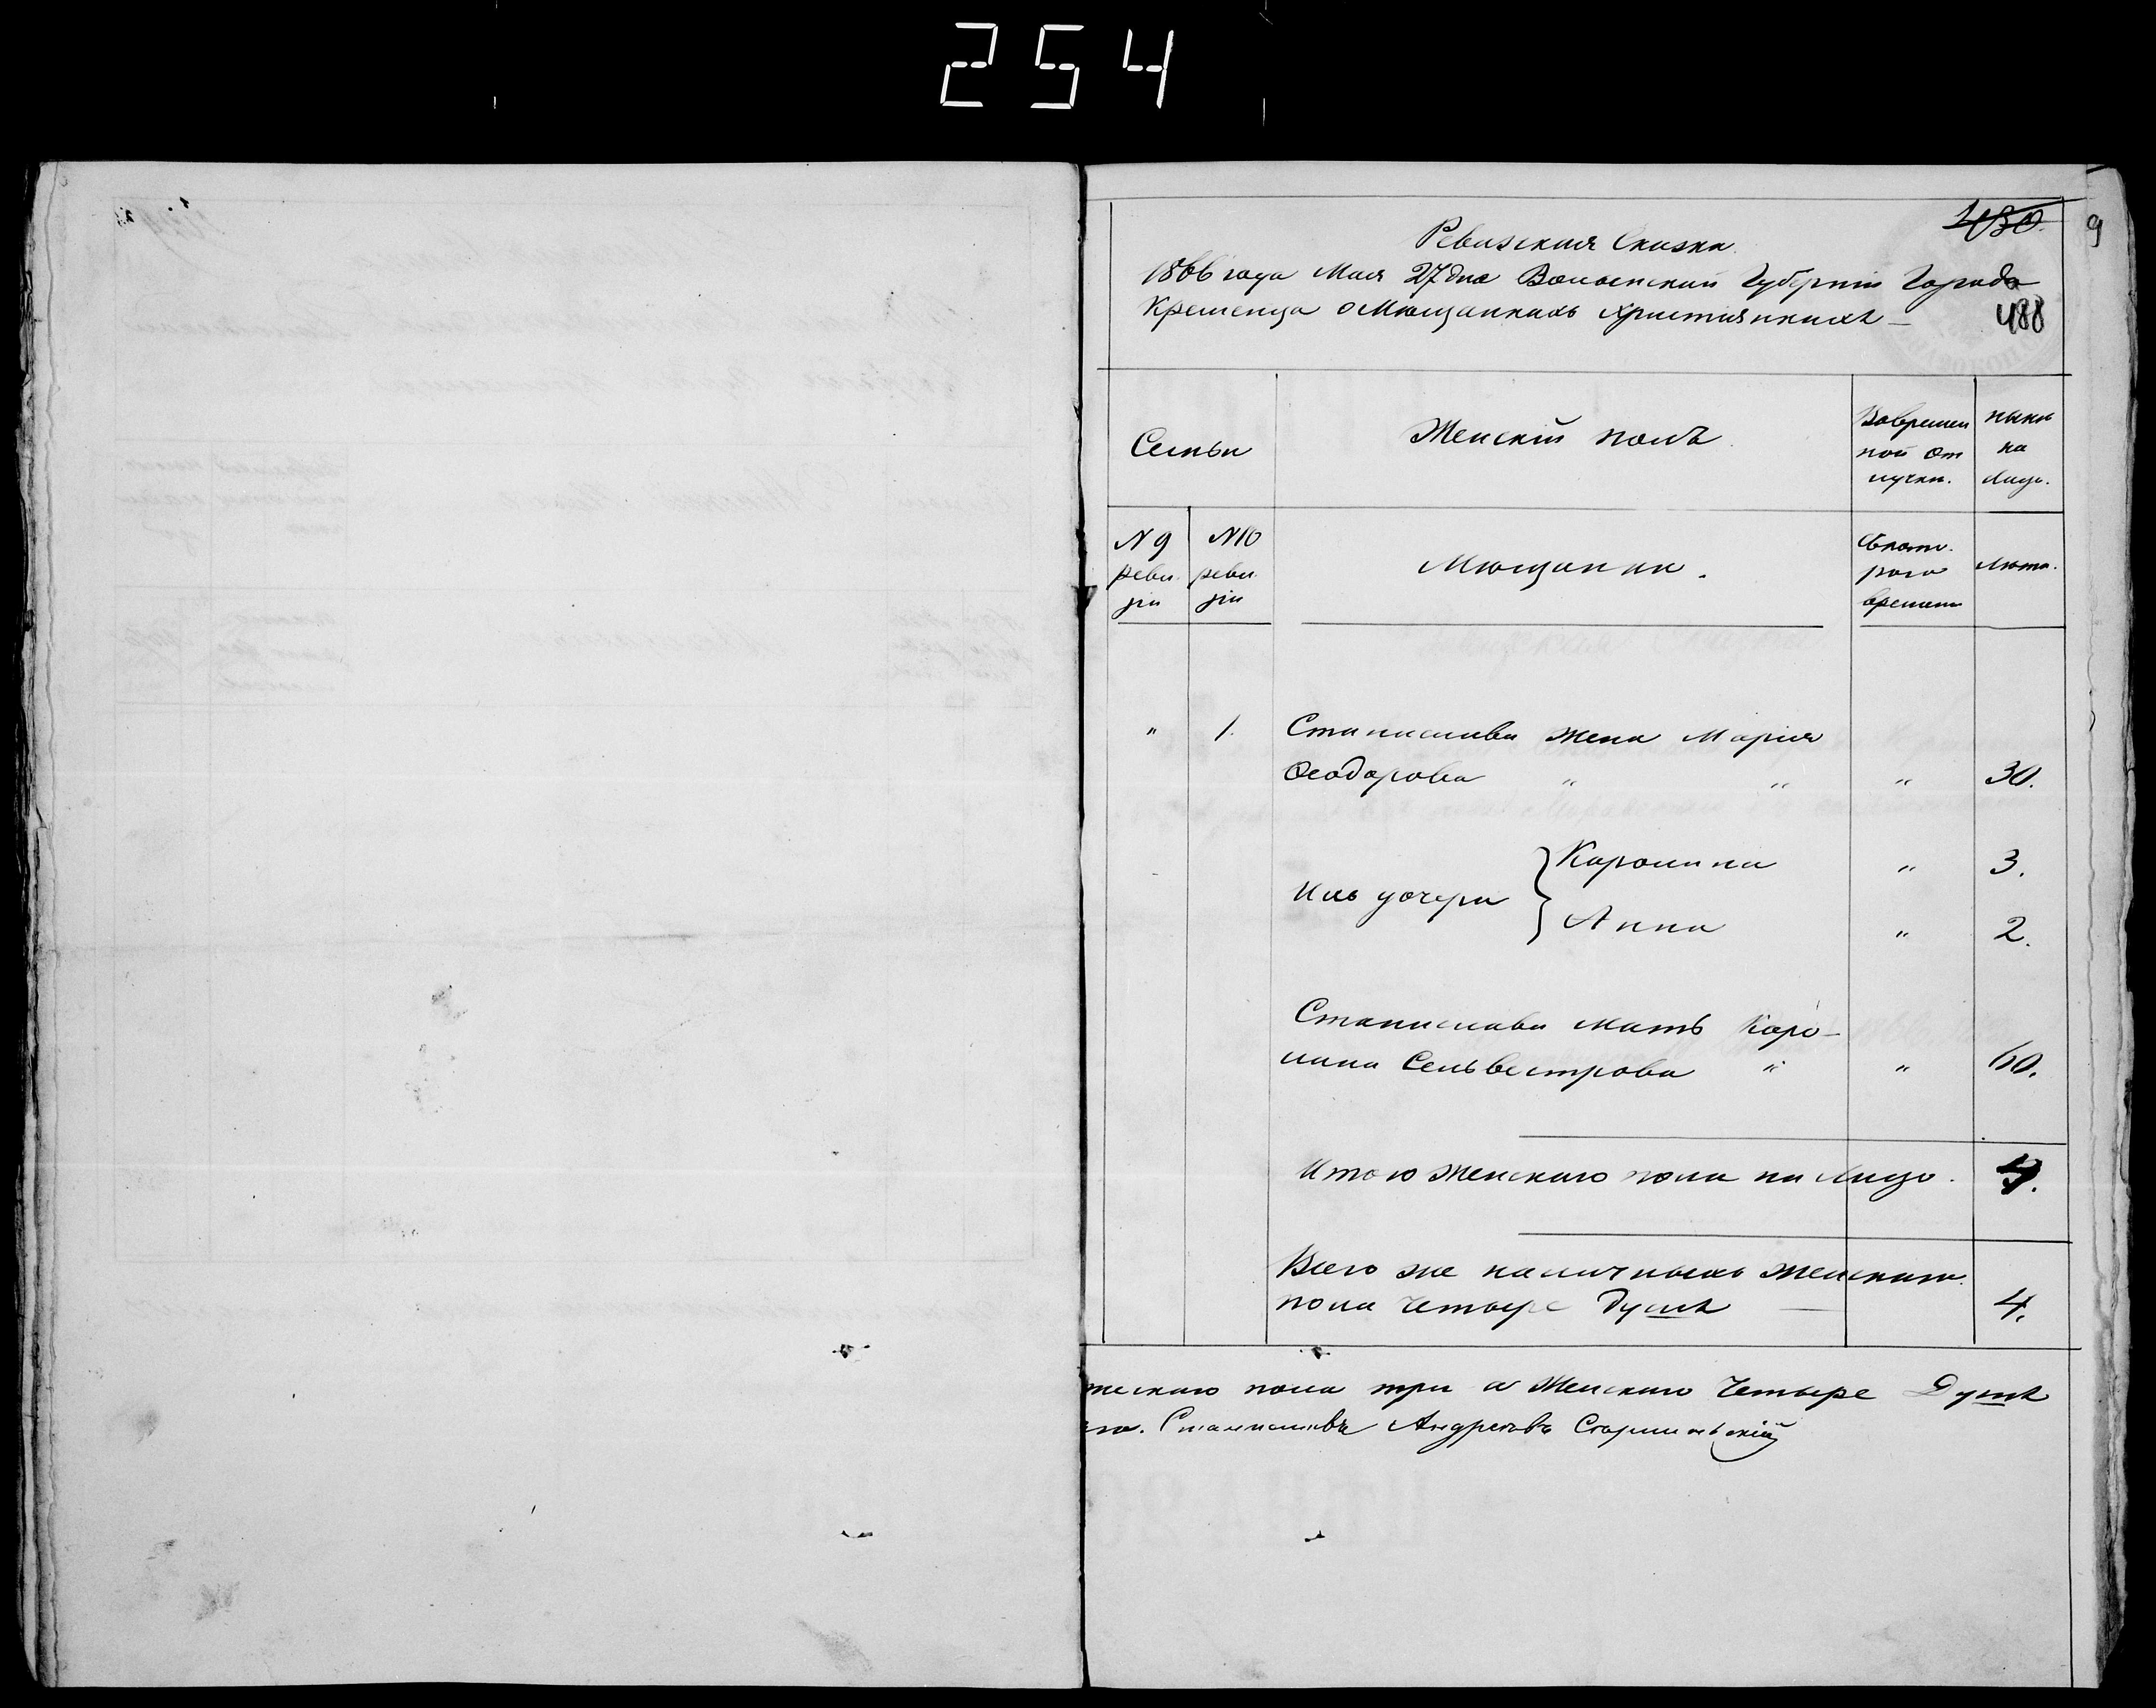 254
430.
9
Ревизския Сказки
1866 года Мая 27 дня Волынский Губернии Города
Кременца о Мѣщанкахъ христіянкахъ
488
Семьи
Женскій полъ
Вовремен
ной От
лучки.
ныни
на
Лицо.
N 9
реви
зіи
N 10
реви
зіи
Мѣщанки.
Скато.
раго
времени
Лѣта.
" 1. Станислава жена Марія
Феодорова " " " 30.
Ихъ дочери
Каролина " 3.
Анна " 2.
Станислава мать Каро-
лина Сельвестрова " " 60.
Итого женскаго пола на лицо. 4.
Всего же наличныхъ женскаго
пола четыре душъ 4.
жескаго пола три а Женскаго Четыре Душъ
Станиславъ Андреевъ